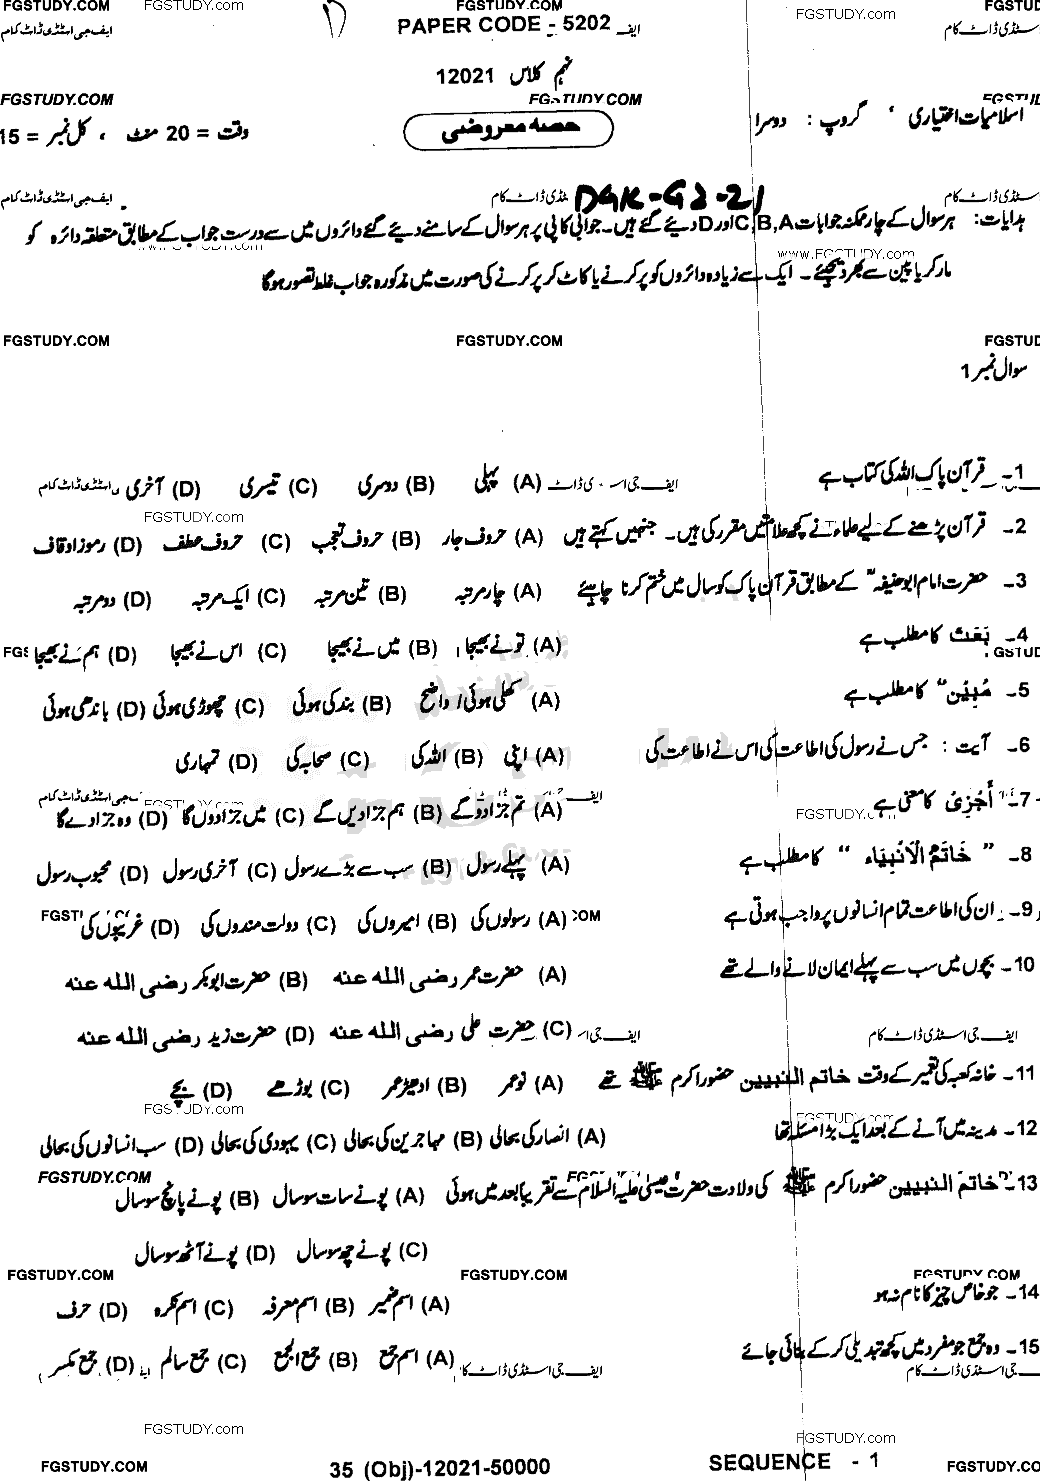 FGSTUDY.COM FGSTUDY.com FGSTUDY.COM FGSTUDY.com
PAPER CODE - 5202 ایف
ایف جی اسٹڈی ڈاٹ کام
نہم کلاس 12021
FGSTUDY.COM FGSTUDY.COM
اسلامیات اختیاری ‘ گروپ : دوسرا حصہ معروضی وقت = 20 منٹ ، کل نمبر = 15
DGK-G2-21
ایف جی اسٹڈی ڈاٹ کام
ہدایات: ہر سوال کے چار ممکنہ جوابات C,B,A اور D دیئے گئے ہیں۔ جوابی کاپی پر ہر سوال کے سامنے دیئے گئے دائروں میں سے درست جواب کے مطابق متعلقہ دائرہ کو
www.FGSTUDY.com
مارکر یا پین سے بھر دیجئیے۔ ایک سے زیادہ دائروں کو پر کرنے یا کاٹ کر پر کرنے کی صورت میں مذکورہ جواب غلط تصور ہوگا
FGSTUDY.COM FGSTUDY.COM
سوال نمبر 1
1۔ قرآن پاک اللہ کی کتاب ہے (A) پہلی (B) دوسری (C) تیسری (D) آخری
FGSTUDY.com
2۔ قرآن پڑھنے کے لیے علماء نے کچھ علامتیں مقرر کی ہیں۔ جنہیں کہتے ہیں (A) حروف جار (B) حروف تعجب (C) حروف عطف (D) رموز اوقاف
3۔ حضرت امام ابو حنیفہؒ کے مطابق قرآن پاک کو سال میں ختم کرنا چاہیئے (A) چار مرتبہ (B) تین مرتبہ (C) ایک مرتبہ (D) دو مرتبہ
4۔ بَعَثَ کا مطلب ہے (A) تو نے بھیجا (B) میں نے بھیجا (C) اس نے بھیجا (D) ہم نے بھیجا
5۔ مُبِیْن“ کا مطلب ہے (A) کھلی ہوئی / واضح (B) بند کی ہوئی (C) چھوڑی ہوئی (D) باندھی ہوئی
6۔ آیت : جس نے رسول کی اطاعت کی اس نے اطاعت کی (A) اپنی (B) اللہ کی (C) صحابہ کی (D) تمہاری
7۔ أَجْزِیْ کا معنی ہے (A) تم جزا دو گے (B) ہم جزا دیں گے (C) میں جزا دوں گا (D) وہ جزا دے گا
8۔ ” خَاتَمُ الْاَنْبِیَاء “ کا مطلب ہے (A) پہلے رسول (B) سب سے بڑے رسول (C) آخری رسول (D) محبوب رسول
9۔ ان کی اطاعت تمام انسانوں پر واجب ہوتی ہے (A) رسولوں کی (B) امیروں کی (C) دولت مندوں کی (D) غریبوں کی
10۔ بچوں میں سب سے پہلے ایمان لانے والے تھے (A) حضرت عمر رضی اللہ عنہ (B) حضرت ابوبکر رضی اللہ عنہ
(C) حضرت علی رضی اللہ عنہ (D) حضرت زید رضی اللہ عنہ
ایف جی اسٹڈی ڈاٹ کام
11۔ خانہ کعبہ کی تعمیر کے وقت خاتم النبیین حضور اکرم ﷺ تھے (A) نو عمر (B) ادھیڑ عمر (C) بوڑھے (D) بچے
FGSTUDY.com
12۔ مدینہ میں آنے کے بعد ایک بڑا مسئلہ تھا (A) انصار کی بحالی (B) مہاجرین کی بحالی (C) یہودی کی بحالی (D) سب انسانوں کی بحالی
FGSTUDY.COM
13۔ خاتم النبیین حضور اکرم ﷺ کی ولادت حضرت عیسیٰ علیہ السلام سے تقریباً بعد میں ہوئی (A) پونے سات سو سال (B) پونے پانچ سو سال
(C) پونے چھ سو سال (D) پونے آٹھ سو سال
FGSTUDY.COM FGSTUDY.COM FGSTUDY.COM
14۔ جو خاص چیز کا نام نہ ہو (A) اسم ضمیر (B) اسم معرفہ (C) اسم نکرہ (D) حرف
15۔ وہ جمع جو مفرد میں کچھ تبدیلی کر کے بنائی جائے (A) اسم جمع (B) جمع الجمع (C) جمع سالم (D) جمع مکسر
FGSTUDY.com FGSTUDY.com
FGSTUDY.COM 35 (Obj)-12021-50000 SEQUENCE - 1